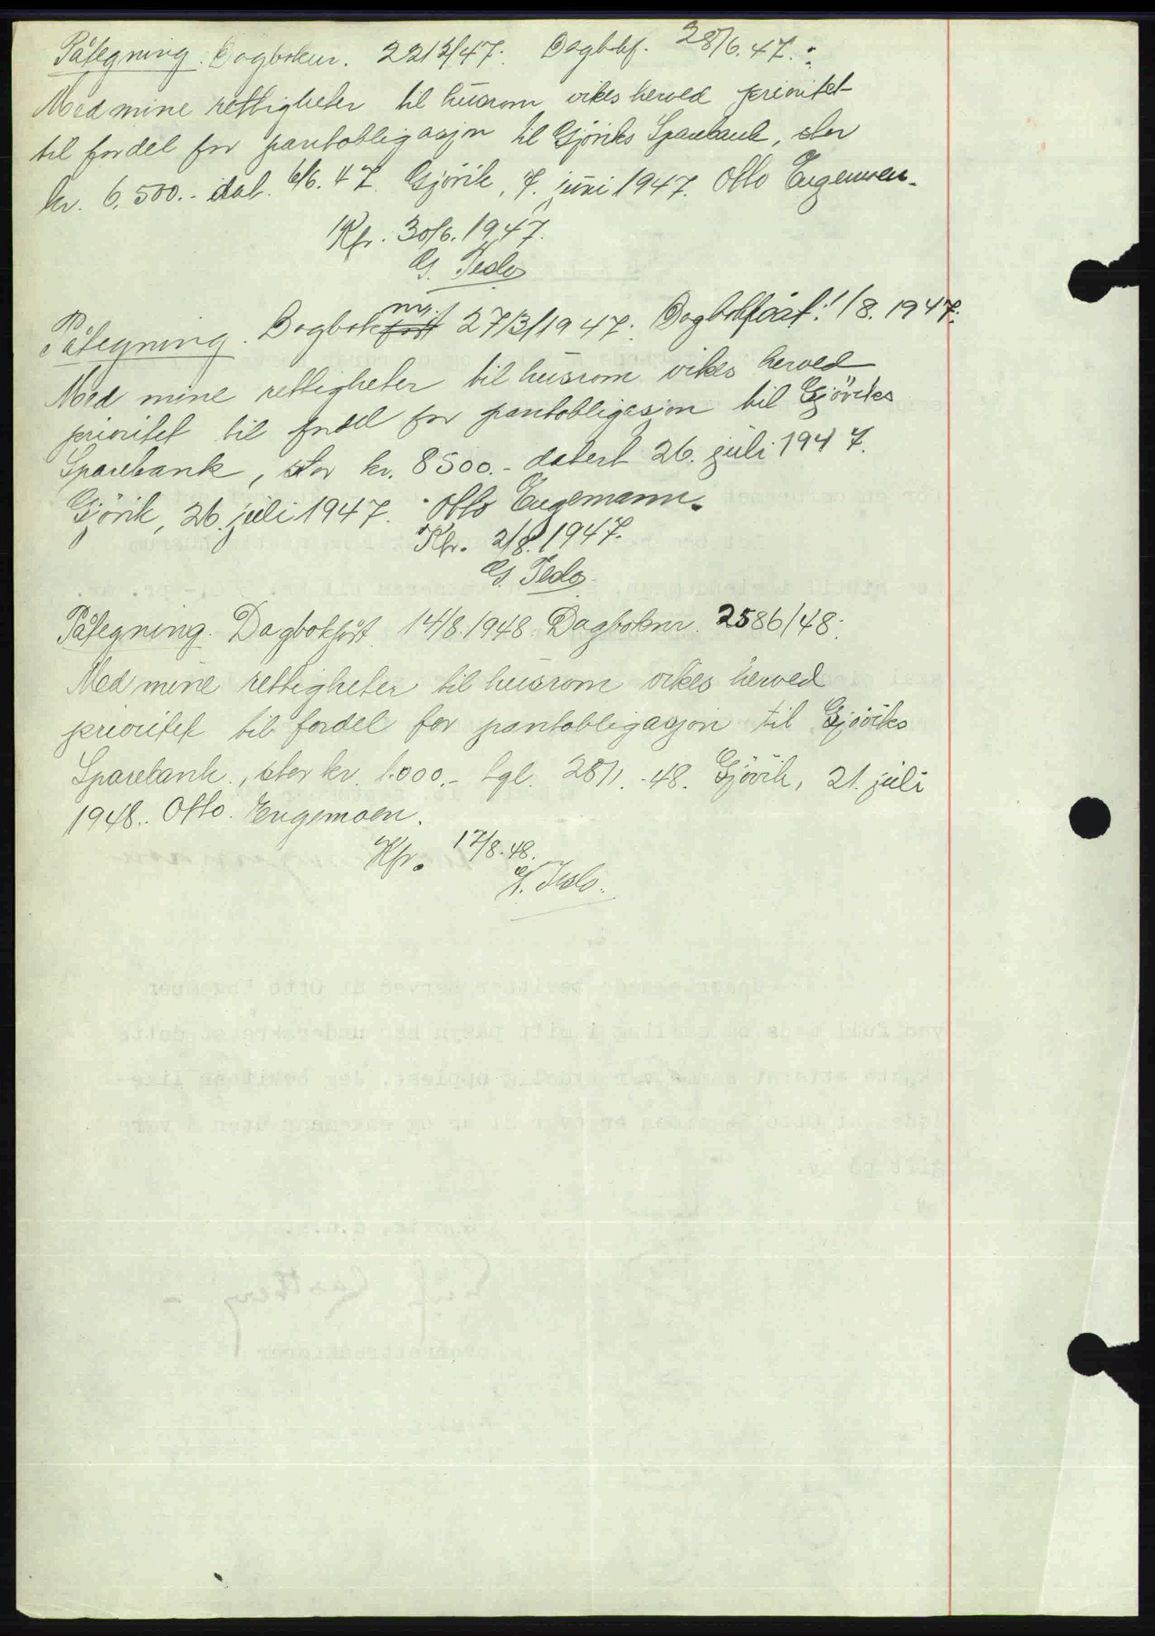 Påtegning. Dagboknr. 2212/47. Dagbokf. 28/6.47.:
Med mine rettigheter til husrom vikes herved prioritet
til fordel for pantobligasjon til Gjøviks Sparebank, stor
kr. 6.500.- dat. 6/6.47. Gjøvik, 7. juni 1947. Otto Engemoen.
Kfr. 30/6.1947.
G. Teslo
Påtegning. Dagboknr. 2713/1947. Dagbokført: 1/8.1947:
Med mine rettigheter til husrom vikes herved
prioritet til fordel for pantobligasjon til Gjøviks
Sparebank, stor kr. 8500.- datert 26. juli 1947.
Gjøvik, 26. juli 1947. Otto Engemann.
Kfr. 2/8.1947.
G. Teslo.
Påtegning. Dagbokført 14/8.1948. Dagboknr. 2586/48:
Med mine rettigheter til husrom vikes herved
prioritet til fordel for pantobligasjon til Gjøviks
Sparebank, stor kr. 1.000.- tgl. 28/1.-48. Gjøvik, 21. juli
1948. Otto Engemoen.
Kfr. 17/8.48.
G. Teslo.